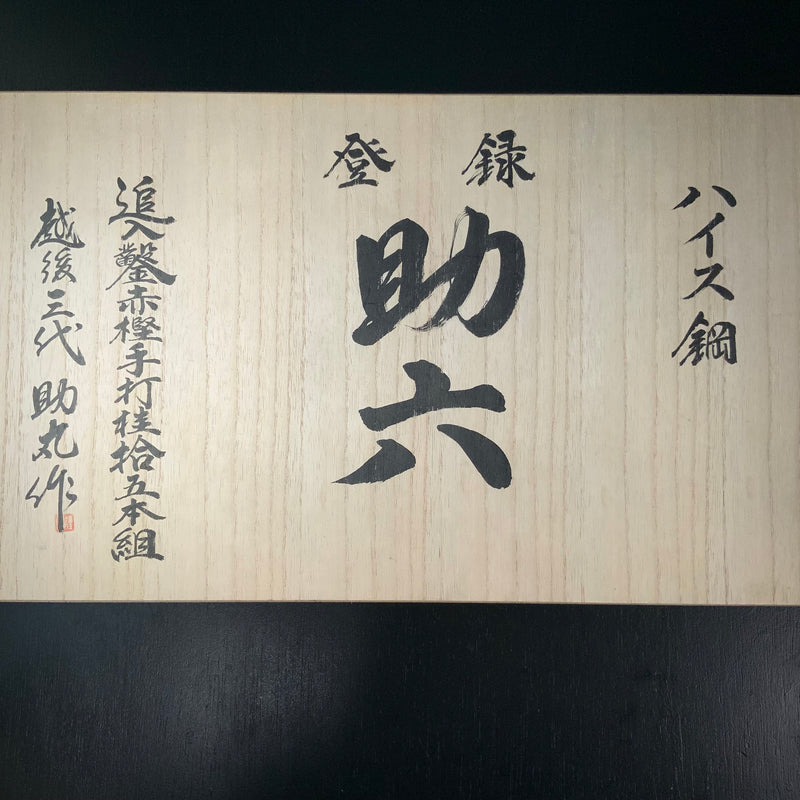 ハイス鋼
登録
助六
追入鑿赤樫手打桂拾五本組
越後三代助丸作